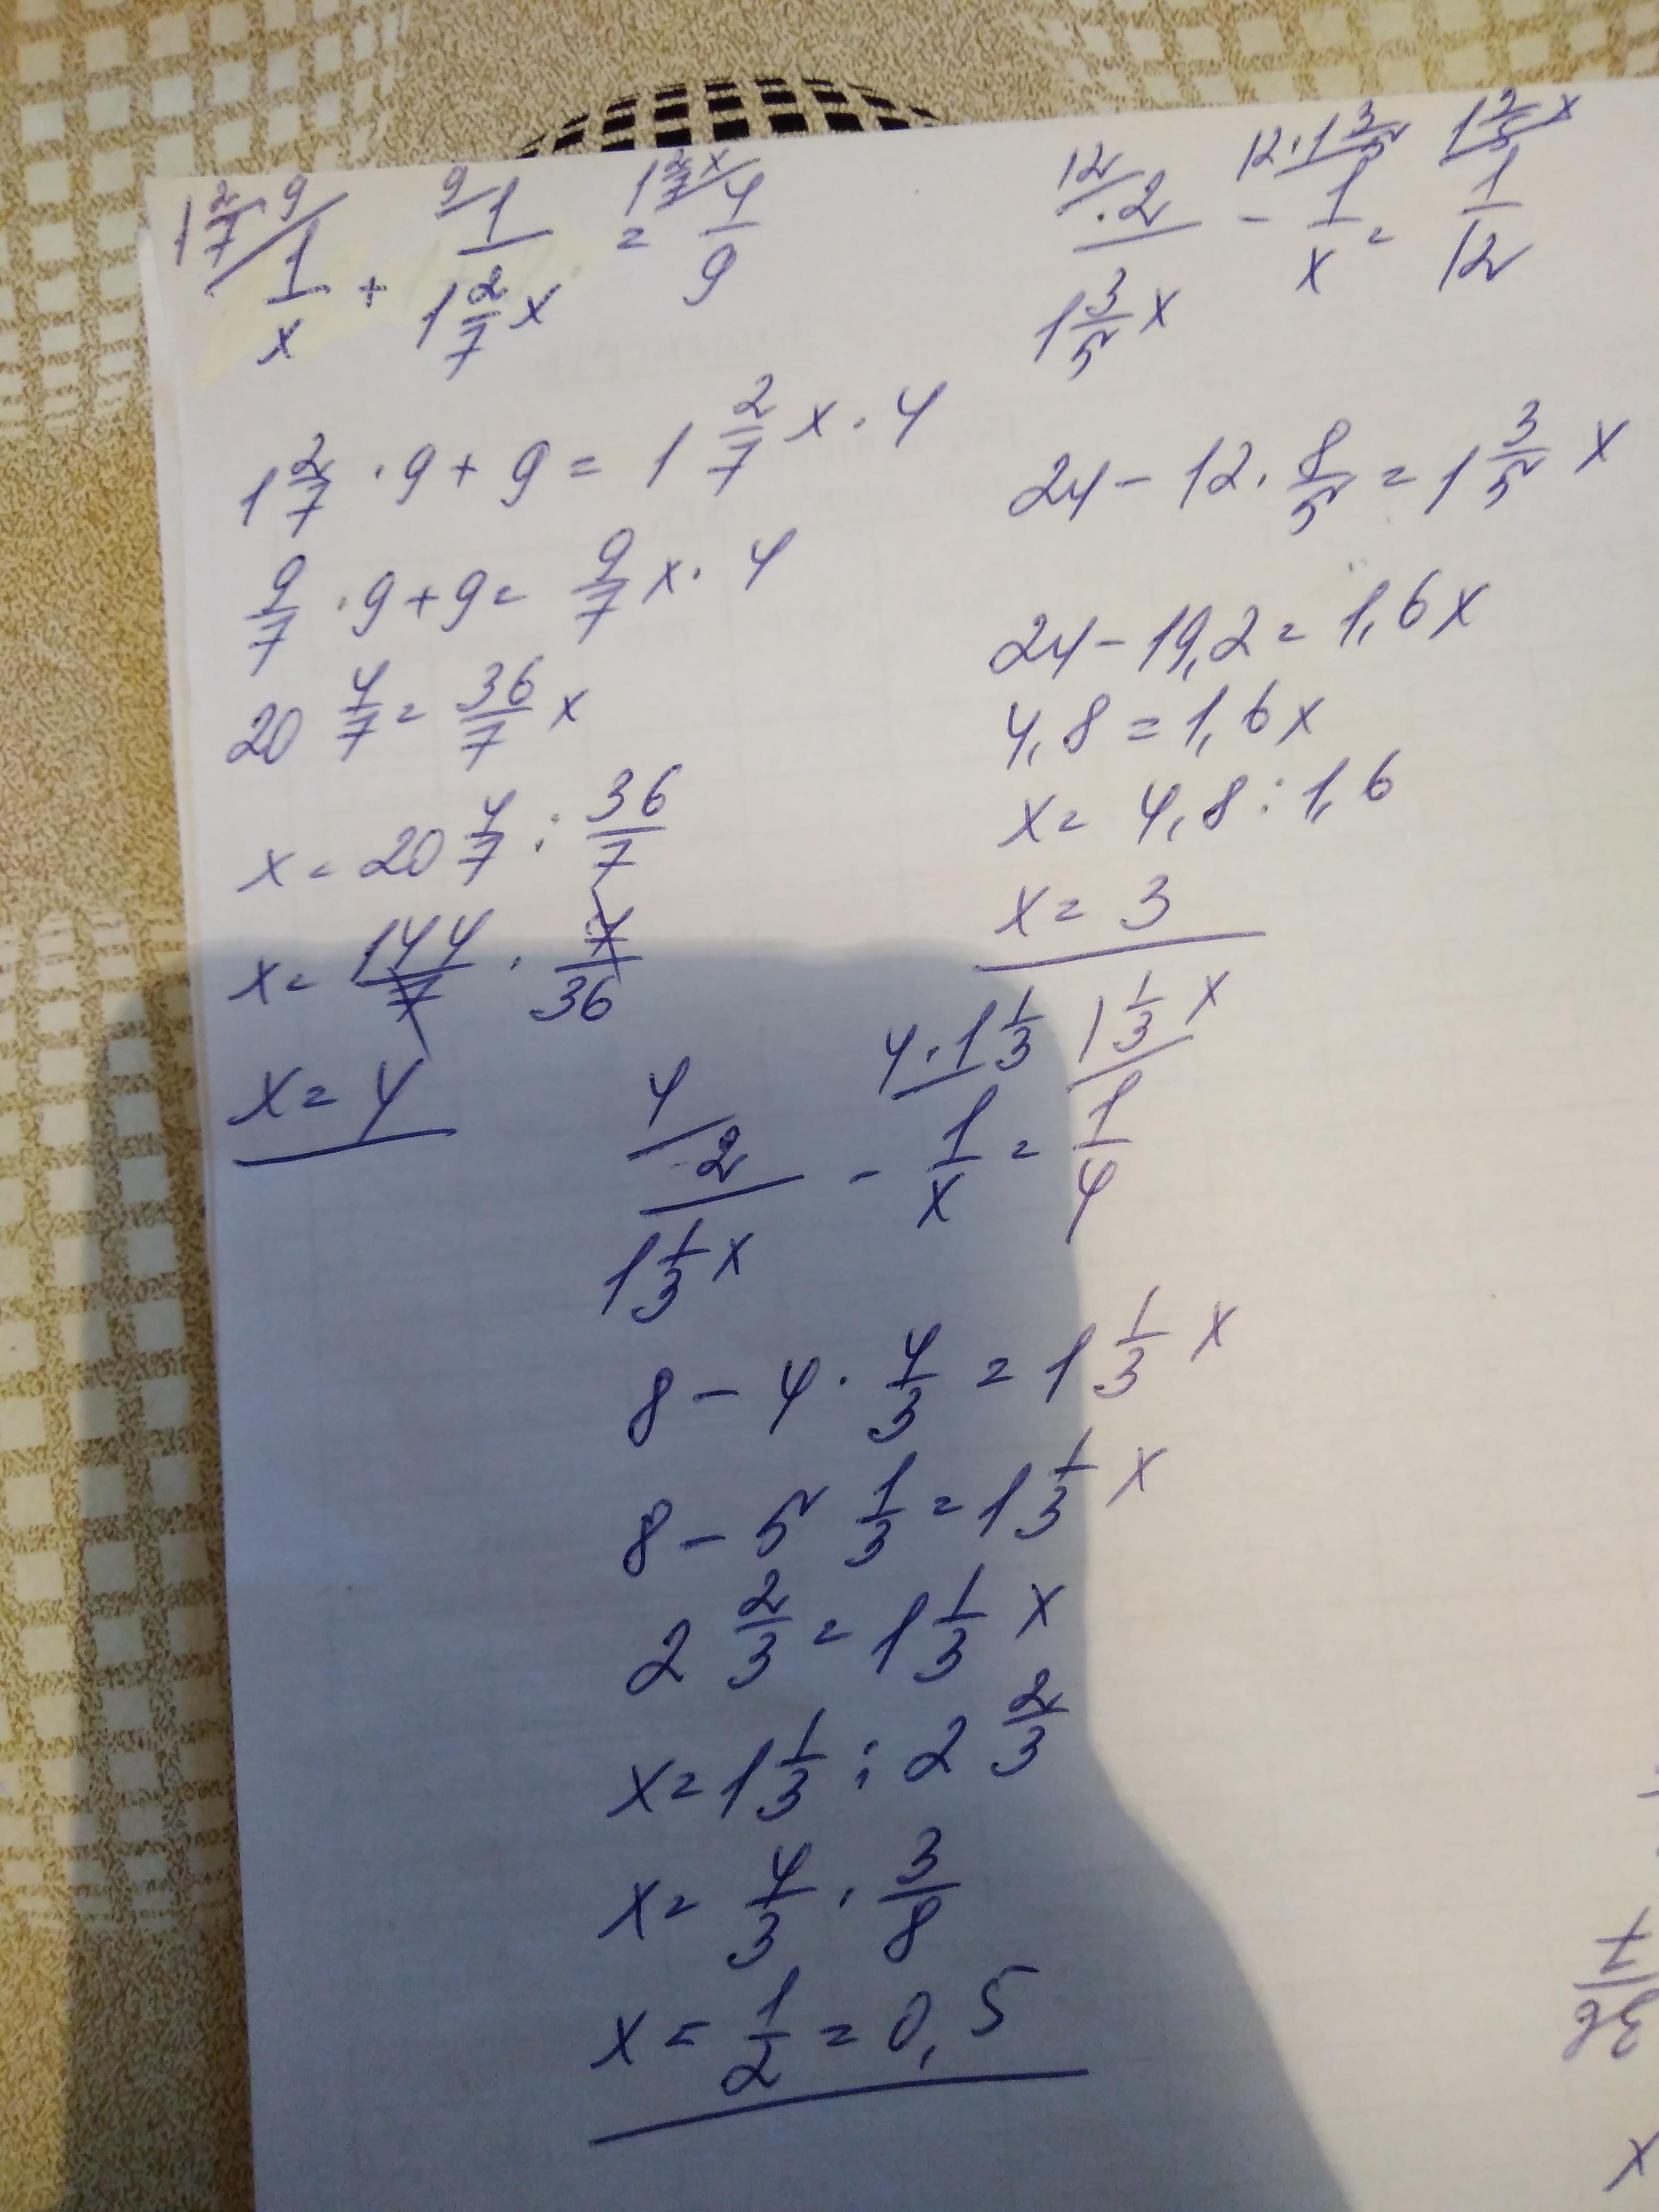 1 2/7 · 9/ 1/x + 9/ 1/(1 2/7 x) = 1 2/7 x/ 4/9
1 2/7 · 9 + 9 = 1 2/7 x · 4
9/7 · 9 + 9 = 9/7 x · 4
20 4/7 = 36/7 x
x = 20 4/7 : 36/7
x = 144/7 · 7/36
x = 4
12/ ·2/(1 3/5 x) - 12·1 3/5/ 1/x = 1 3/5 x/ 1/12
24 - 12 · 8/5 = 1 3/5 x
24 - 19,2 = 1,6x
4,8 = 1,6x
x = 4,8 : 1,6
x = 3
4/ ·2/(1 1/3 x) - 4·1 1/3/ 1/x = 1 1/3 x/ 1/4
8 - 4 · 4/3 = 1 1/3 x
8 - 5 1/3 = 1 1/3 x
2 2/3 = 1 1/3 x
x = 1 1/3 : 2 2/3
x = 4/3 · 3/8
x = 1/2 = 0,5